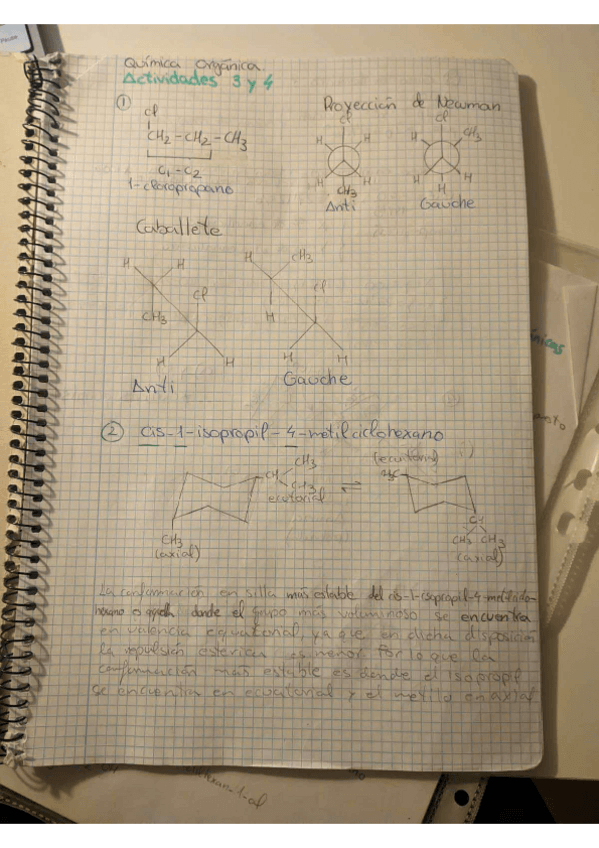 Química Orgánica.
Actividades 3 y 4
①
Cl
CH2 - CH2 - CH3
C1 - C2
1-cloropropano
Proyección de Newman
Cl
H H
H H
CH3
Anti
Cl
H CH3
H H
H
Gauche
Caballete
H H
Cl
CH3
H H
Anti
H CH3
Cl
H
H H
Gauche
② cis-1-isopropil-4-metilciclohexano
CH3
CH
CH3
ecuatorial
CH3
(axial)
⇌
(ecuatorial)
H3C
CH
CH3 CH3
(axial)
La conformación en silla más estable del cis-1-isopropil-4-metilciclo-
hexano donde el grupo más voluminoso se encuentra
en valencia ecuatorial, ya que en dicha disposición
la repulsión estérica es menor por lo que la
conformación más estable es donde el isopropil
se encuentra en ecuatorial y el metilo en axial